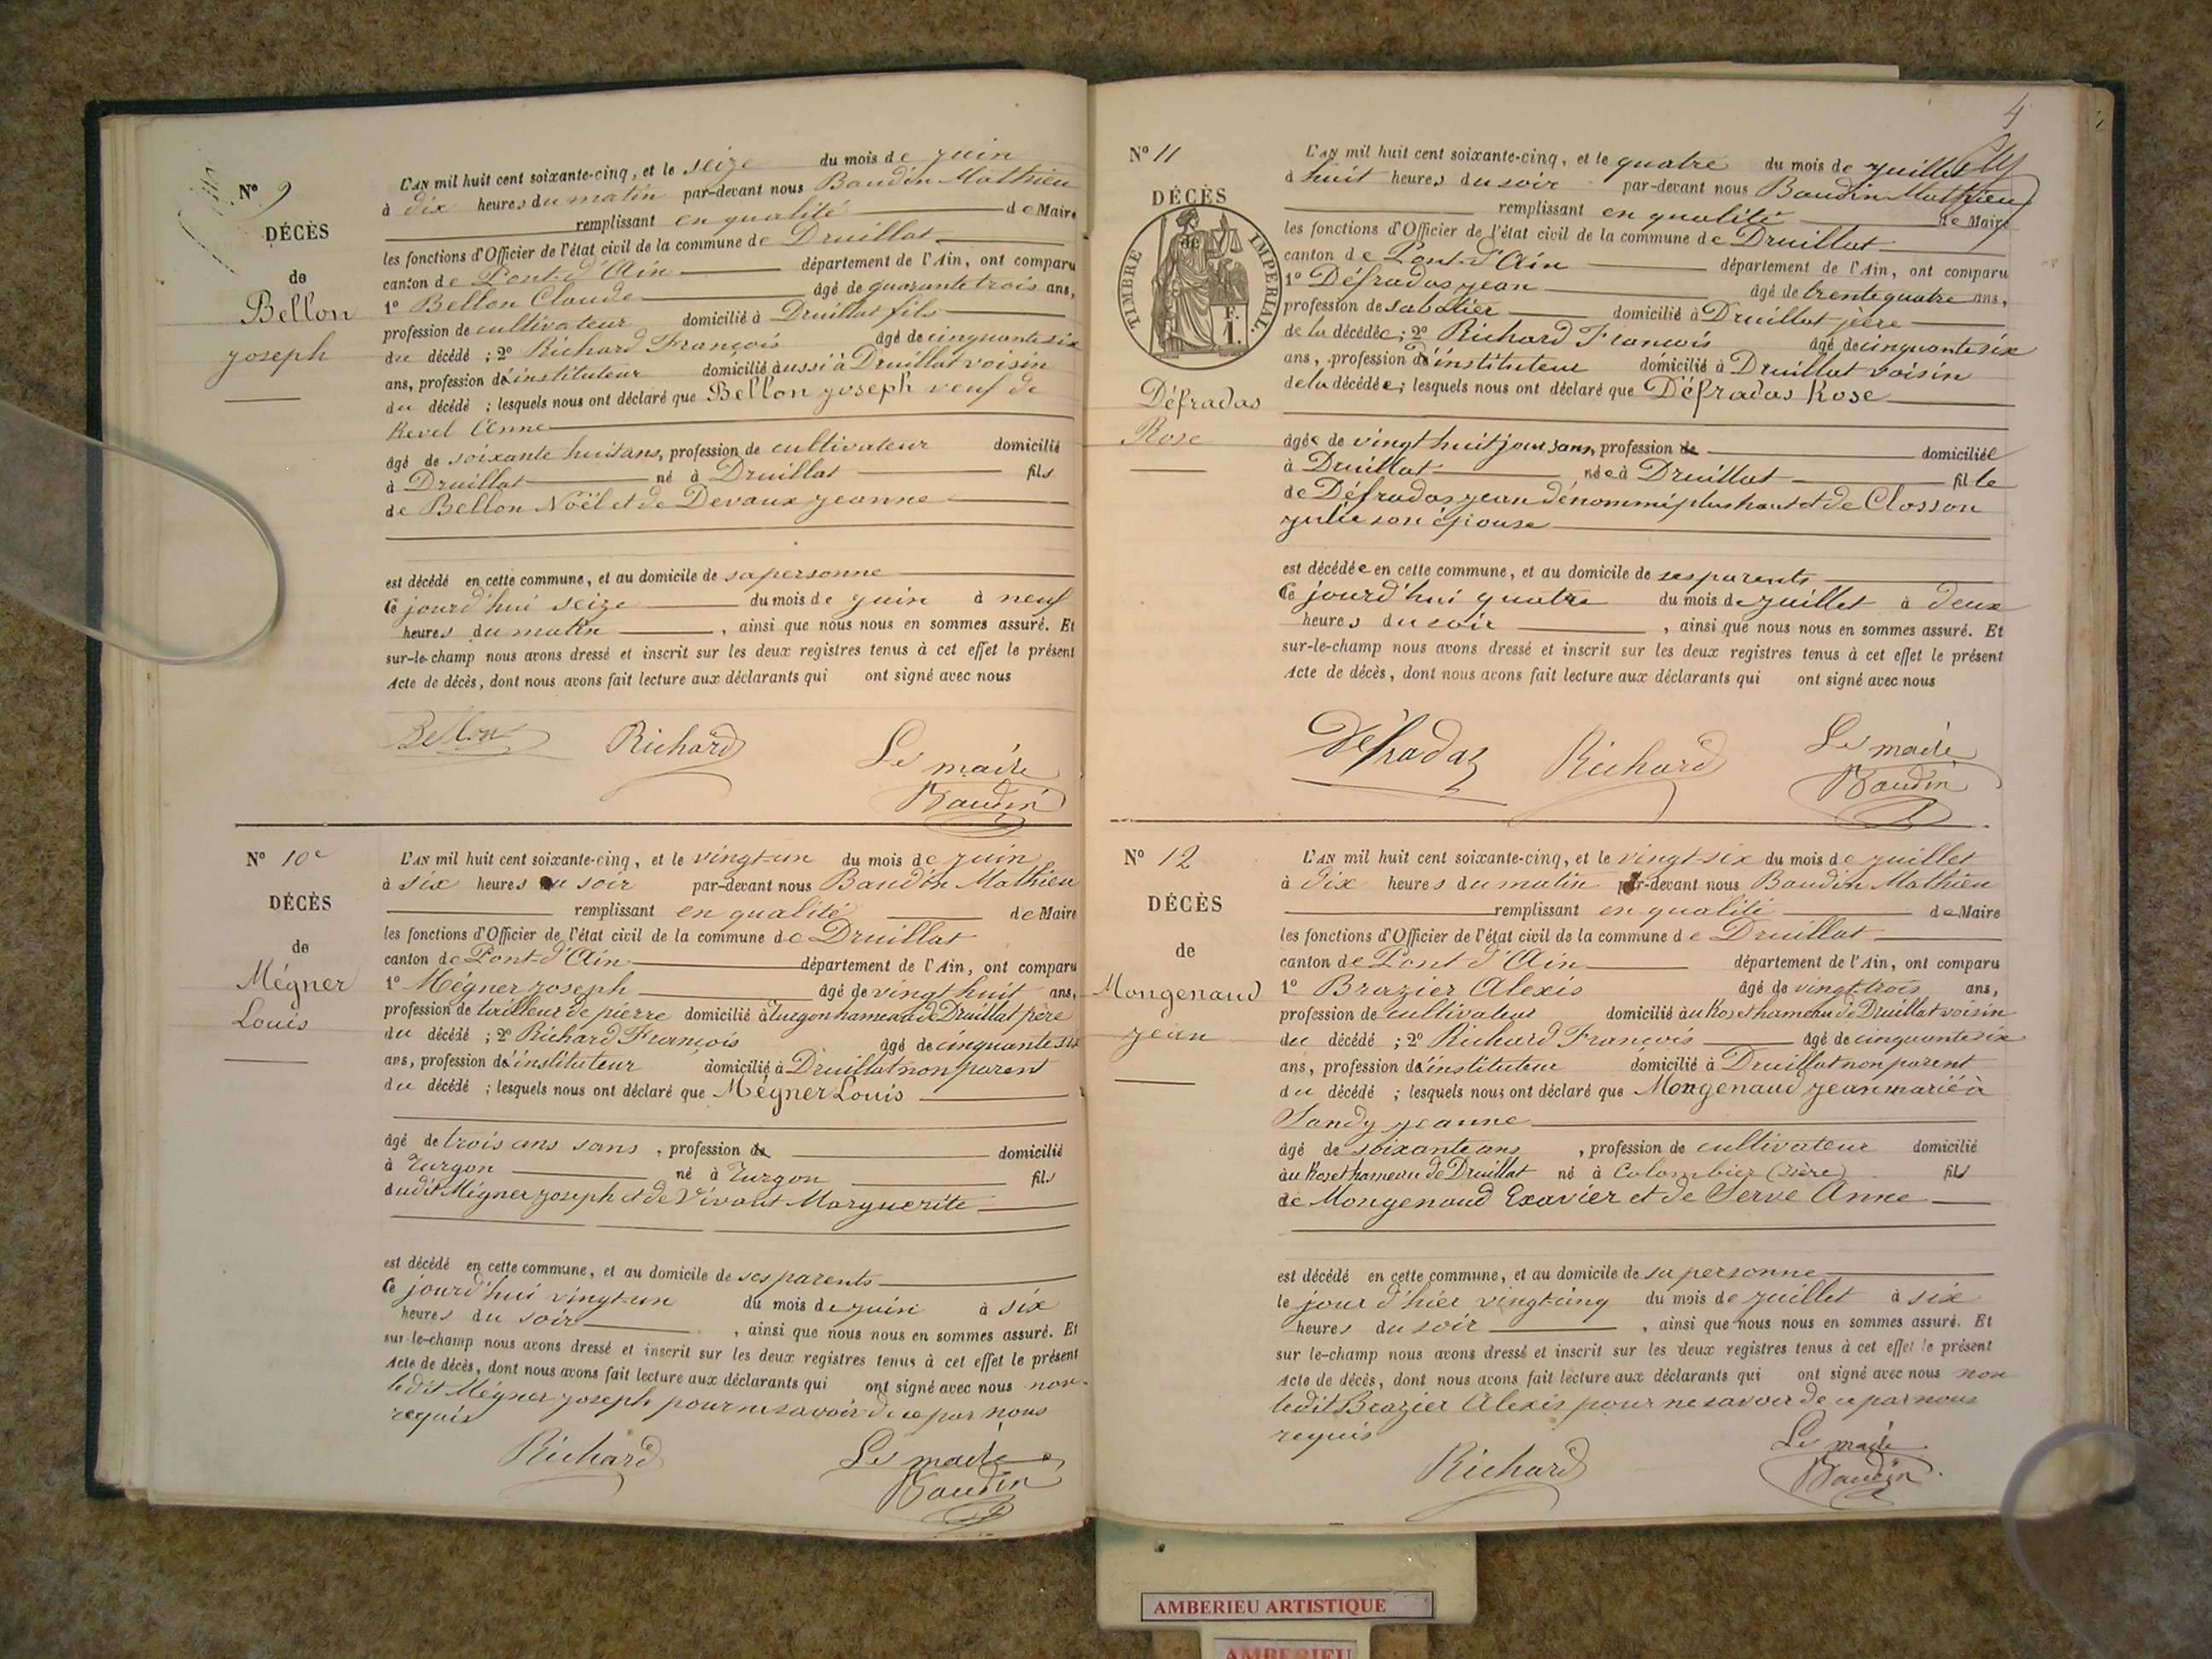 Nº 9
DÉCÈS
de
Bellon
Joseph
L'AN mil huit cent soixante-cinq, et le seize du mois de juin
à dix heures du matin par-devant nous Baudin Mathieu
remplissant en qualité de Maire
les fonctions d'Officier de l'état civil de la commune de Druillat
canton de Pont-d'Ain département de l'Ain, ont comparu
1º Bellon Claude âgé de quarante trois ans,
profession de cultivateur domicilié à Druillat fils
du décédé ; 2º Richard François âgé de cinquante six
ans, profession d'instituteur domicilié aussi à Druillat voisin
du décédé ; lesquels nous ont déclaré que Bellon Joseph veuf de
Revel Anne
âgé de soixante huit ans, profession de cultivateur domicilié
à Druillat né à Druillat fils
de Bellon Noël et de Devaux Jeanne
est décédé en cette commune, et au domicile de sa personne
Ce jourd'hui seize du mois de juin à neuf
heures du matin , ainsi que nous nous en sommes assuré. Et
sur-le-champ nous avons dressé et inscrit sur les deux registres tenus à cet effet le présent
Acte de décès, dont nous avons fait lecture aux déclarants qui ont signé avec nous
Bellon Richard Le maire
Baudin
Nº 10e
DÉCÈS
de
Mégner
Louis
L'AN mil huit cent soixante-cinq, et le vingt-un du mois de juin
à six heures du soir par-devant nous Baudin Mathieu
remplissant en qualité de Maire
les fonctions d'Officier de l'état civil de la commune de Druillat
canton de Pont-d'Ain département de l'Ain, ont comparu
1º Mégner Joseph âgé de vingt huit ans,
profession de tailleur de pierre domicilié à Turgon hameau de Druillat père
du décédé ; 2º Richard François âgé de cinquante six
ans, profession d'instituteur domicilié à Druillat non parent
du décédé ; lesquels nous ont déclaré que Mégner Louis
âgé de trois ans sans , profession de domicilié
à Turgon né à Turgon fils
dudit Mégner Joseph et de Vivant Marguerite
est décédé en cette commune, et au domicile de ses parents
Ce jourd'hui vingt-un du mois de juin à six
heures du soir , ainsi que nous nous en sommes assuré. Et
sur-le-champ nous avons dressé et inscrit sur les deux registres tenus à cet effet le présent
Acte de décès, dont nous avons fait lecture aux déclarants qui ont signé avec nous non
ledit Mégner Joseph pour ne savoir de ce par nous
requis
Richard Le maire
Baudin
4
Nº 11
DÉCÈS
de
TIMBRE IMPÉRIAL
F.
1.
Défradas
Rose
L'AN mil huit cent soixante-cinq, et le quatre du mois de juillet
à huit heures du soir par-devant nous Baudin Mathieu
remplissant en qualité de Maire
les fonctions d'Officier de l'état civil de la commune de Druillat
canton de Pont-d'Ain département de l'Ain, ont comparu
1º Défradas Jean âgé de trente quatre ans,
profession de sabotier domicilié à Druillat père
de la décédée ; 2º Richard François âgé de cinquante six
ans, profession d'instituteur domicilié à Druillat voisin
de la décédée ; lesquels nous ont déclaré que Défradas Rose
âgée de vingt huit jours sans, profession de domiciliée
à Druillat née à Druillat fille
de Défradas Jean dénommé plus haut et de Closson
Julie son épouse
est décédée en cette commune, et au domicile de ses parents
Ce jourd'hui quatre du mois de juillet à deux
heures du soir , ainsi que nous nous en sommes assuré. Et
sur-le-champ nous avons dressé et inscrit sur les deux registres tenus à cet effet le présent
Acte de décès, dont nous avons fait lecture aux déclarants qui ont signé avec nous
Défradas Richard Le maire
Baudin
Nº 12
DÉCÈS
de
Mongenaud
Jean
L'AN mil huit cent soixante-cinq, et le vingt-six du mois de juillet
à dix heures du matin par-devant nous Baudin Mathieu
remplissant en qualité de Maire
les fonctions d'Officier de l'état civil de la commune de Druillat
canton de Pont d'Ain département de l'Ain, ont comparu
1º Brazier Alexis âgé de vingt-trois ans,
profession de cultivateur domicilié au Roset hameau de Druillat voisin
du décédé ; 2º Richard François âgé de cinquante six
ans, profession d'instituteur domicilié à Druillat non parent
du décédé ; lesquels nous ont déclaré que Mongenaud Jean marié à
Sandy Jeanne
âgé de soixante ans , profession de cultivateur domicilié
au Roset hameau de Druillat né à Colombier (Isère) fils
de Mongenaud Exavier et de Serve Anne
est décédé en cette commune, et au domicile de sa personne
le jour d'hier vingt-cinq du mois de juillet à six
heures du soir , ainsi que nous nous en sommes assuré. Et
sur le-champ nous avons dressé et inscrit sur les deux registres tenus à cet effet le présent
Acte de décès, dont nous avons fait lecture aux déclarants qui ont signé avec nous non
ledit Brazier Alexis pour ne savoir de ce par nous
requis
Richard Le maire
Baudin
AMBERIEU ARTISTIQUE
AMBERIEU